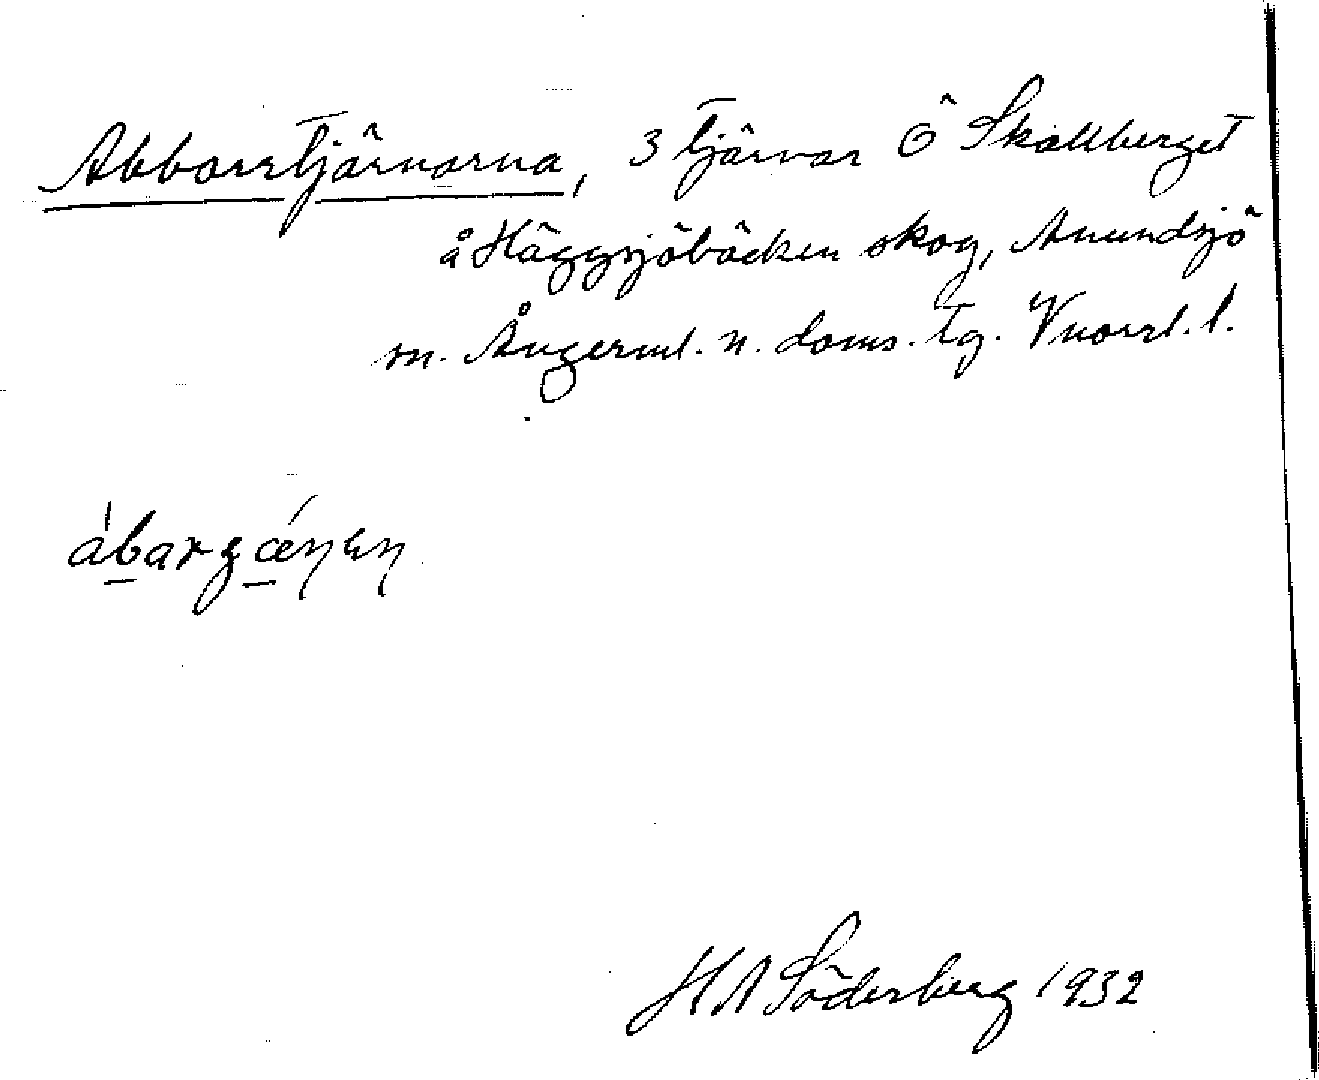 Abborrtjärnarna, 3 tjärnar Ö Skallberget
å Häggsjöbäcken skog, Anundsjö
sn. Ångerml. n. doms. tg. Vnorrl. l.
H A Söderberg 1932